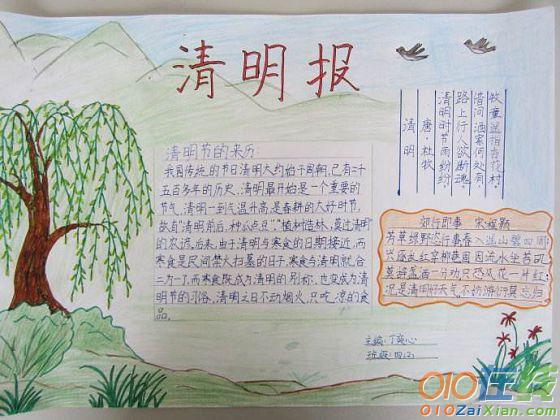 清明报
清明节的来历:
我国传统的节日清明大约始于周朝,已有二十
五百多年的历史,清明最开始是一个重要的
节气,清明一到气温升高,是春耕的大好时节,
故有“清明前后,种瓜点豆”“植树造林,莫过清明”
的农谚。后来,由于清明与寒食的日期接近,而
寒食是民间禁火扫墓的日子,寒食与清明就合
二为一了,而寒食既成为清明的别称,也变成为清明
节的习俗,清明之日不动烟火,只吃凉的食
品。
清明
唐·杜牧
清明时节雨纷纷
路上行人欲断魂
借问酒家何处有
牧童遥指杏花村
郊行即事 宋程颢
芳草绿野恣行事春入遥山碧四周
兴逐乱红穿柳巷困临流水坐苔矶
莫辞盏酒一分劝只恐风花一片红
况是清明好天气不妨游衍莫忘归
主编:丁奕心
班级:四(2)
010在线
010ZaiXian.com